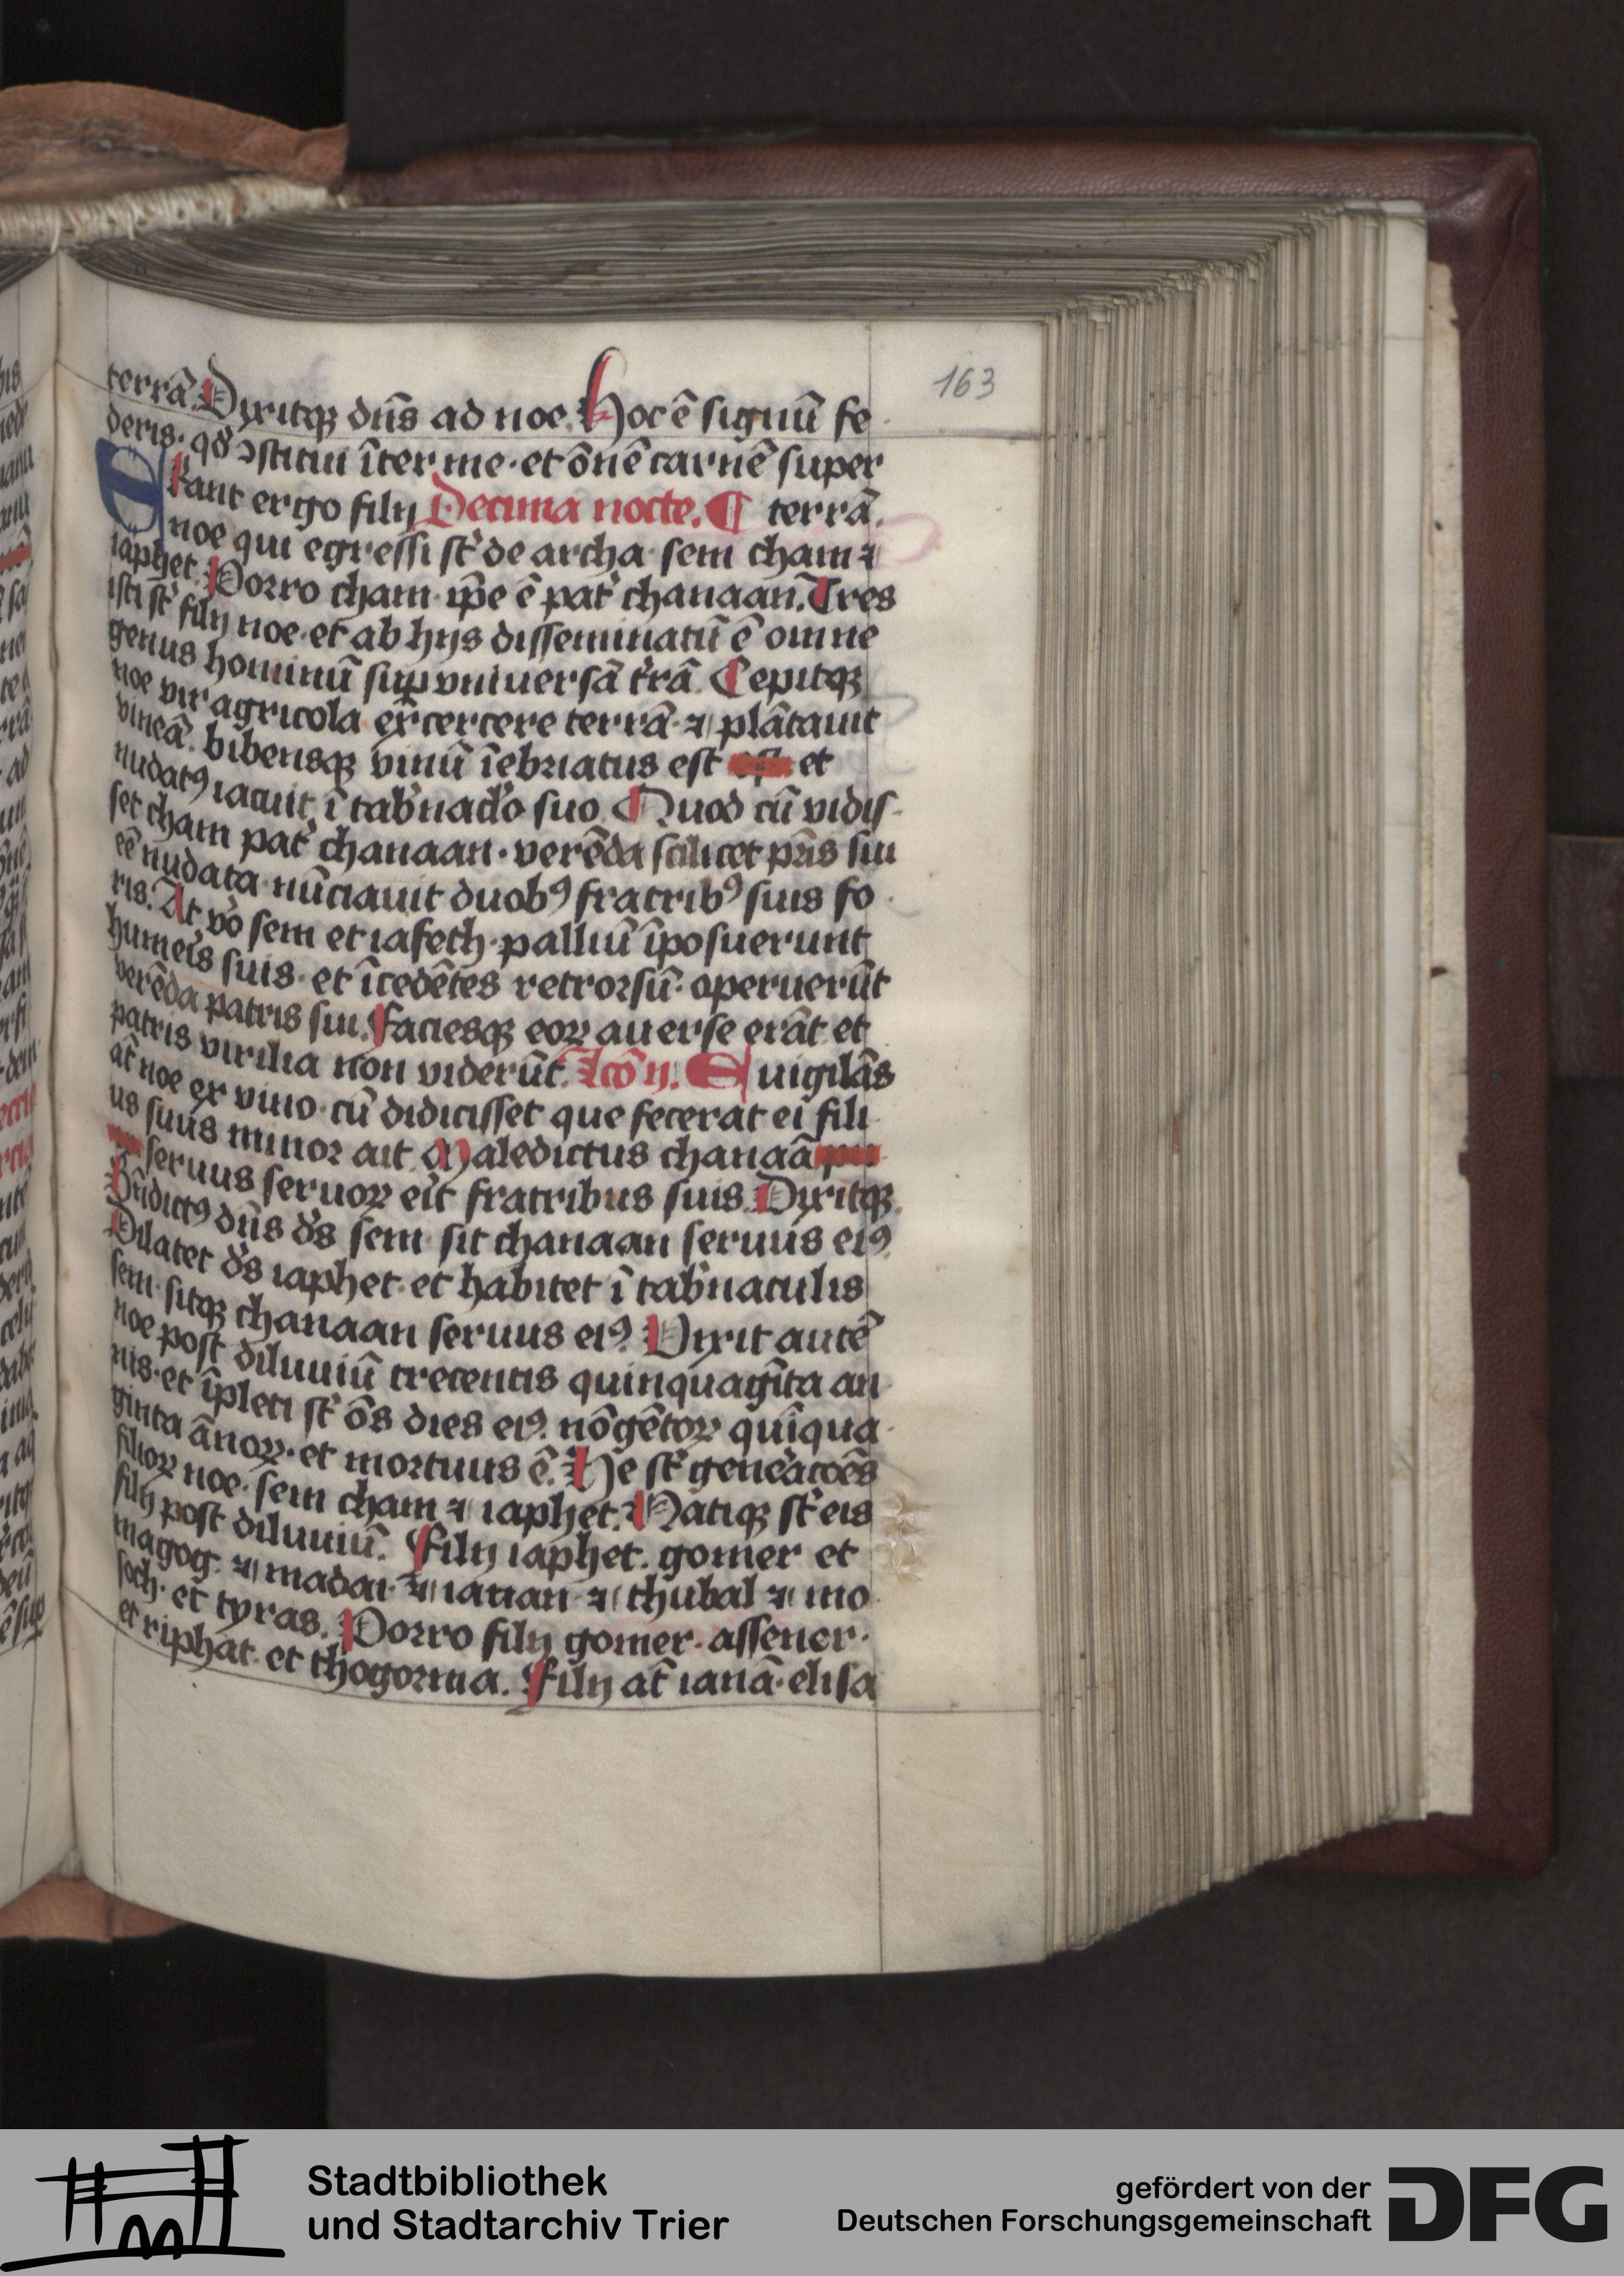 163
terrā. Dixitqꝫ dn̄s ad noe. Hoc ē signū fe
deris. qđ ↄstitui īter me. et ōnē carnē super
Erant ergo filij Decima nocte. ¶ terrā.
noe qui egressi st̄ de archa. sem cham ⁊
iaphet. Porro cham. ip̄e ē pat̄ chanaan. Tres
isti st̄ filij noe. et ab hijs disseminatū ē omne
genus hominū suꝑ vniuersā t̄rā. Cepitqꝫ
noe vir agricola exercere terrā. ⁊ plātauit
vineā. bibensqꝫ vinū īebriatus est et
nudatꝰ iacuit ī tab̄nac̄lo suo. Quod cū vidis
set cham pat̄ chanaan. verēda scilicet pr̄is sui
eē nudata. nūciauit duobꝰ fratribꝰ suis fo
ris. At v̄o sem et iafeth. palliū īposuerunt
humeis suis. et īcedētes retrorsū. operuerūt
verēda patris sui. Faciesqꝫ eoꝝ auerse erāt et
patris virilia non viderūt. Lcō ij. Euigilās
at̄ noe ex vino. cū didicisset que fecerat ei fili
us suus minor ait. Maledictus chanaā
seruus seruoꝝ eit fratribus suis. Dixitqꝫ
Bn̄dictꝰ dn̄s ds̄ sem. sit chanaan seruus eiꝰ.
Dilatet ds̄ iaphet. et habitet ī tab̄naculis
sem. sitqꝫ chanaan seruus eiꝰ. Vixit autē
noe post diluuiū trecentis quinquagīta an
nis. et īpleti st̄ ōs dies eiꝰ. nōgētoꝝ quīqua
ginta ānoꝝ. et mortuus ē. He st̄ gen̄acōēs
filioꝝ noe. sem cham ⁊ iaphet. Natiqꝫ st̄ eis
filij post diluuiū. Filij iaphet. gomer et
magog. ⁊ madai. ⁊ iauan ⁊ thubal ⁊ mo
soch. et tyras. Porro filij gomer. assener.
et riphat. et thogorma. Filij at̄ ianā. elisa
Stadtbibliothek
und Stadtarchiv Trier
gefördert von der
Deutschen Forschungsgemeinschaft
DFG